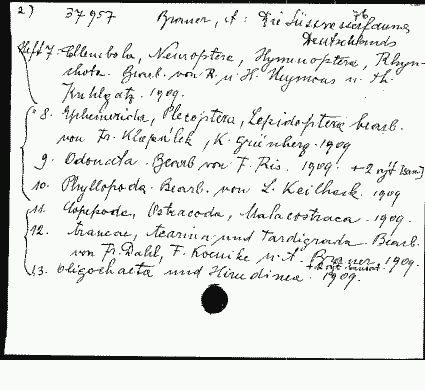 2) 37957 Brauer, A: Die Süsswasserfauna
Deutschlands
Heft 7. Collembola, Neuroptera, Hymenoptera, Rhyn-
chota. Bearb. von R. u. H. Heymons u. Th.
Kuhlgatz. 1909.
" 8. Ephemerida, Plecoptera, Lepidoptera bearb.
von Fr. Klapálek, K. Grünberg. 1909
9. Odonata. Bearb von F. Ris. 1909.
10. Phyllopoda. Bearb. von L. Keilhack. 1909
11. Copepoda, Ostracoda, Malacostraca. 1909.
12. Araneae, Acarina und Tardigrada. Bearb.
von Fr. Dahl, F. Koenike u. A. Brauer. 1909.
13. Oligochaeta und Hirudinea. 1909.